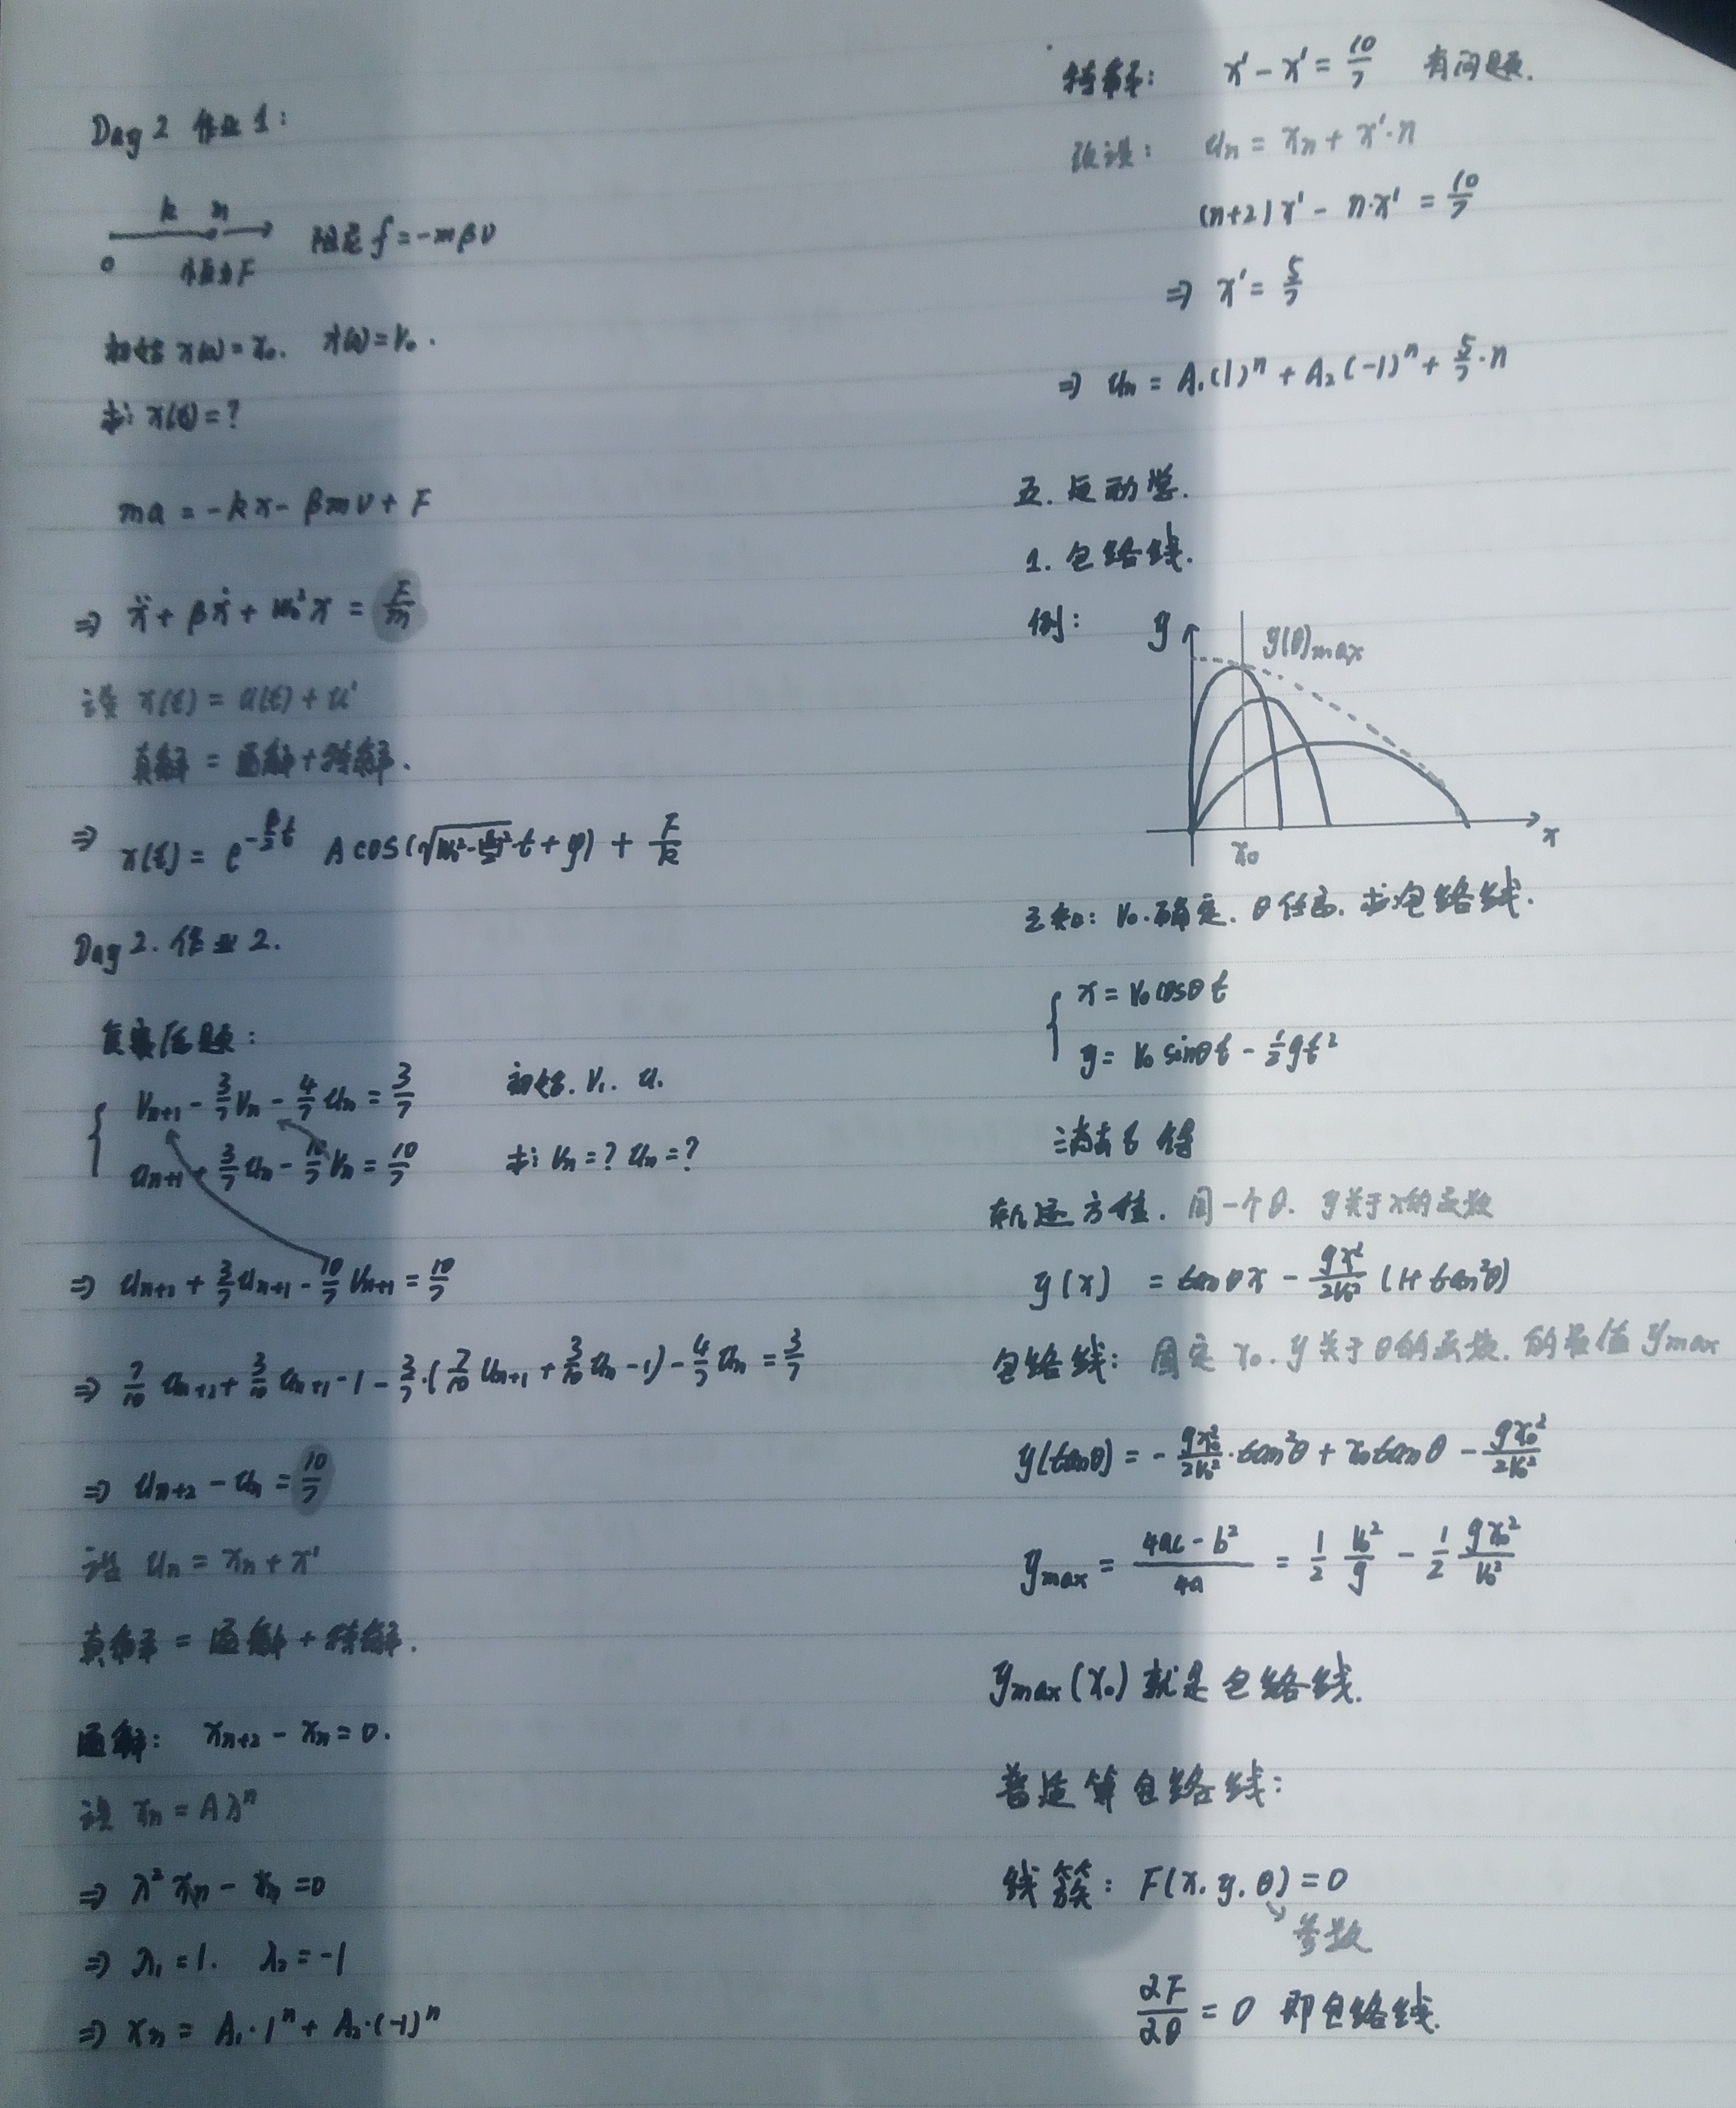 Day 2 作业 1:
k m
0 恒力F 阻尼 f=-mβv
初始 x(0)=x₀. ẋ(0)=V₀.
求: x(t)=?
ma = -kx - βmv + F
⇒ ẍ + βẋ + ω₀²x = F/m
设 x(t) = u(t) + u'
真解 = 通解+特解.
⇒ x(t) = e^(-β/2 t) A cos(√(ω₀²-(β/2)²) t + φ) + F/k
Day 2. 作业 2.
复赛压题:
Vn+1 - 3/7 Vn - 4/7 un = 3/7 初始. V₁. u₁
un+1 + 3/7 un - 10/7 Vn = 10/7 求: Vn=? un=?
⇒ un+2 + 3/7 un+1 - 10/7 Vn+1 = 10/7
⇒ 7/10 un+2 + 3/10 un+1 - 1 - 3/7·(7/10 un+1 + 3/10 un - 1) - 4/7 un = 3/7
⇒ un+2 - un = 10/7
设 un = xn + x'
真解 = 通解 + 特解.
通解: xn+2 - xn = 0.
设 xn = Aλⁿ
⇒ λ² xn - xn = 0
⇒ λ₁ = 1. λ₂ = -1
⇒ xn = A₁·1ⁿ + A₂·(-1)ⁿ
特解: x' - x' = 10/7 有问题.
改设: un = xn + x'·n
(n+2)x' - n·x' = 10/7
⇒ x' = 5/7
⇒ un = A₁(1)ⁿ + A₂(-1)ⁿ + 5/7·n
五. 运动学.
1. 包络线.
例: y y(θ)max
x₀ x
已知: V₀.确定. θ任意. 求包络线.
x = V₀ cosθ t
y = V₀ sinθ t - ½gt²
消去 t 得
轨迹方程. 同一个θ. y关于x的函数
y(x) = tanθ x - gx²/2V₀² (1+tan²θ)
包络线: 固定 x₀. y关于θ的函数. 的最值 ymax
y(tanθ) = - gx₀²/2V₀² · tan²θ + x₀ tanθ - gx₀²/2V₀²
ymax = (4ac - b²)/4a = 1/2 V₀²/g - 1/2 gx₀²/V₀²
ymax(x₀) 就是包络线.
普适算包络线:
线簇: F(x. y. θ) = 0
参数
∂F/∂θ = 0 即包络线.